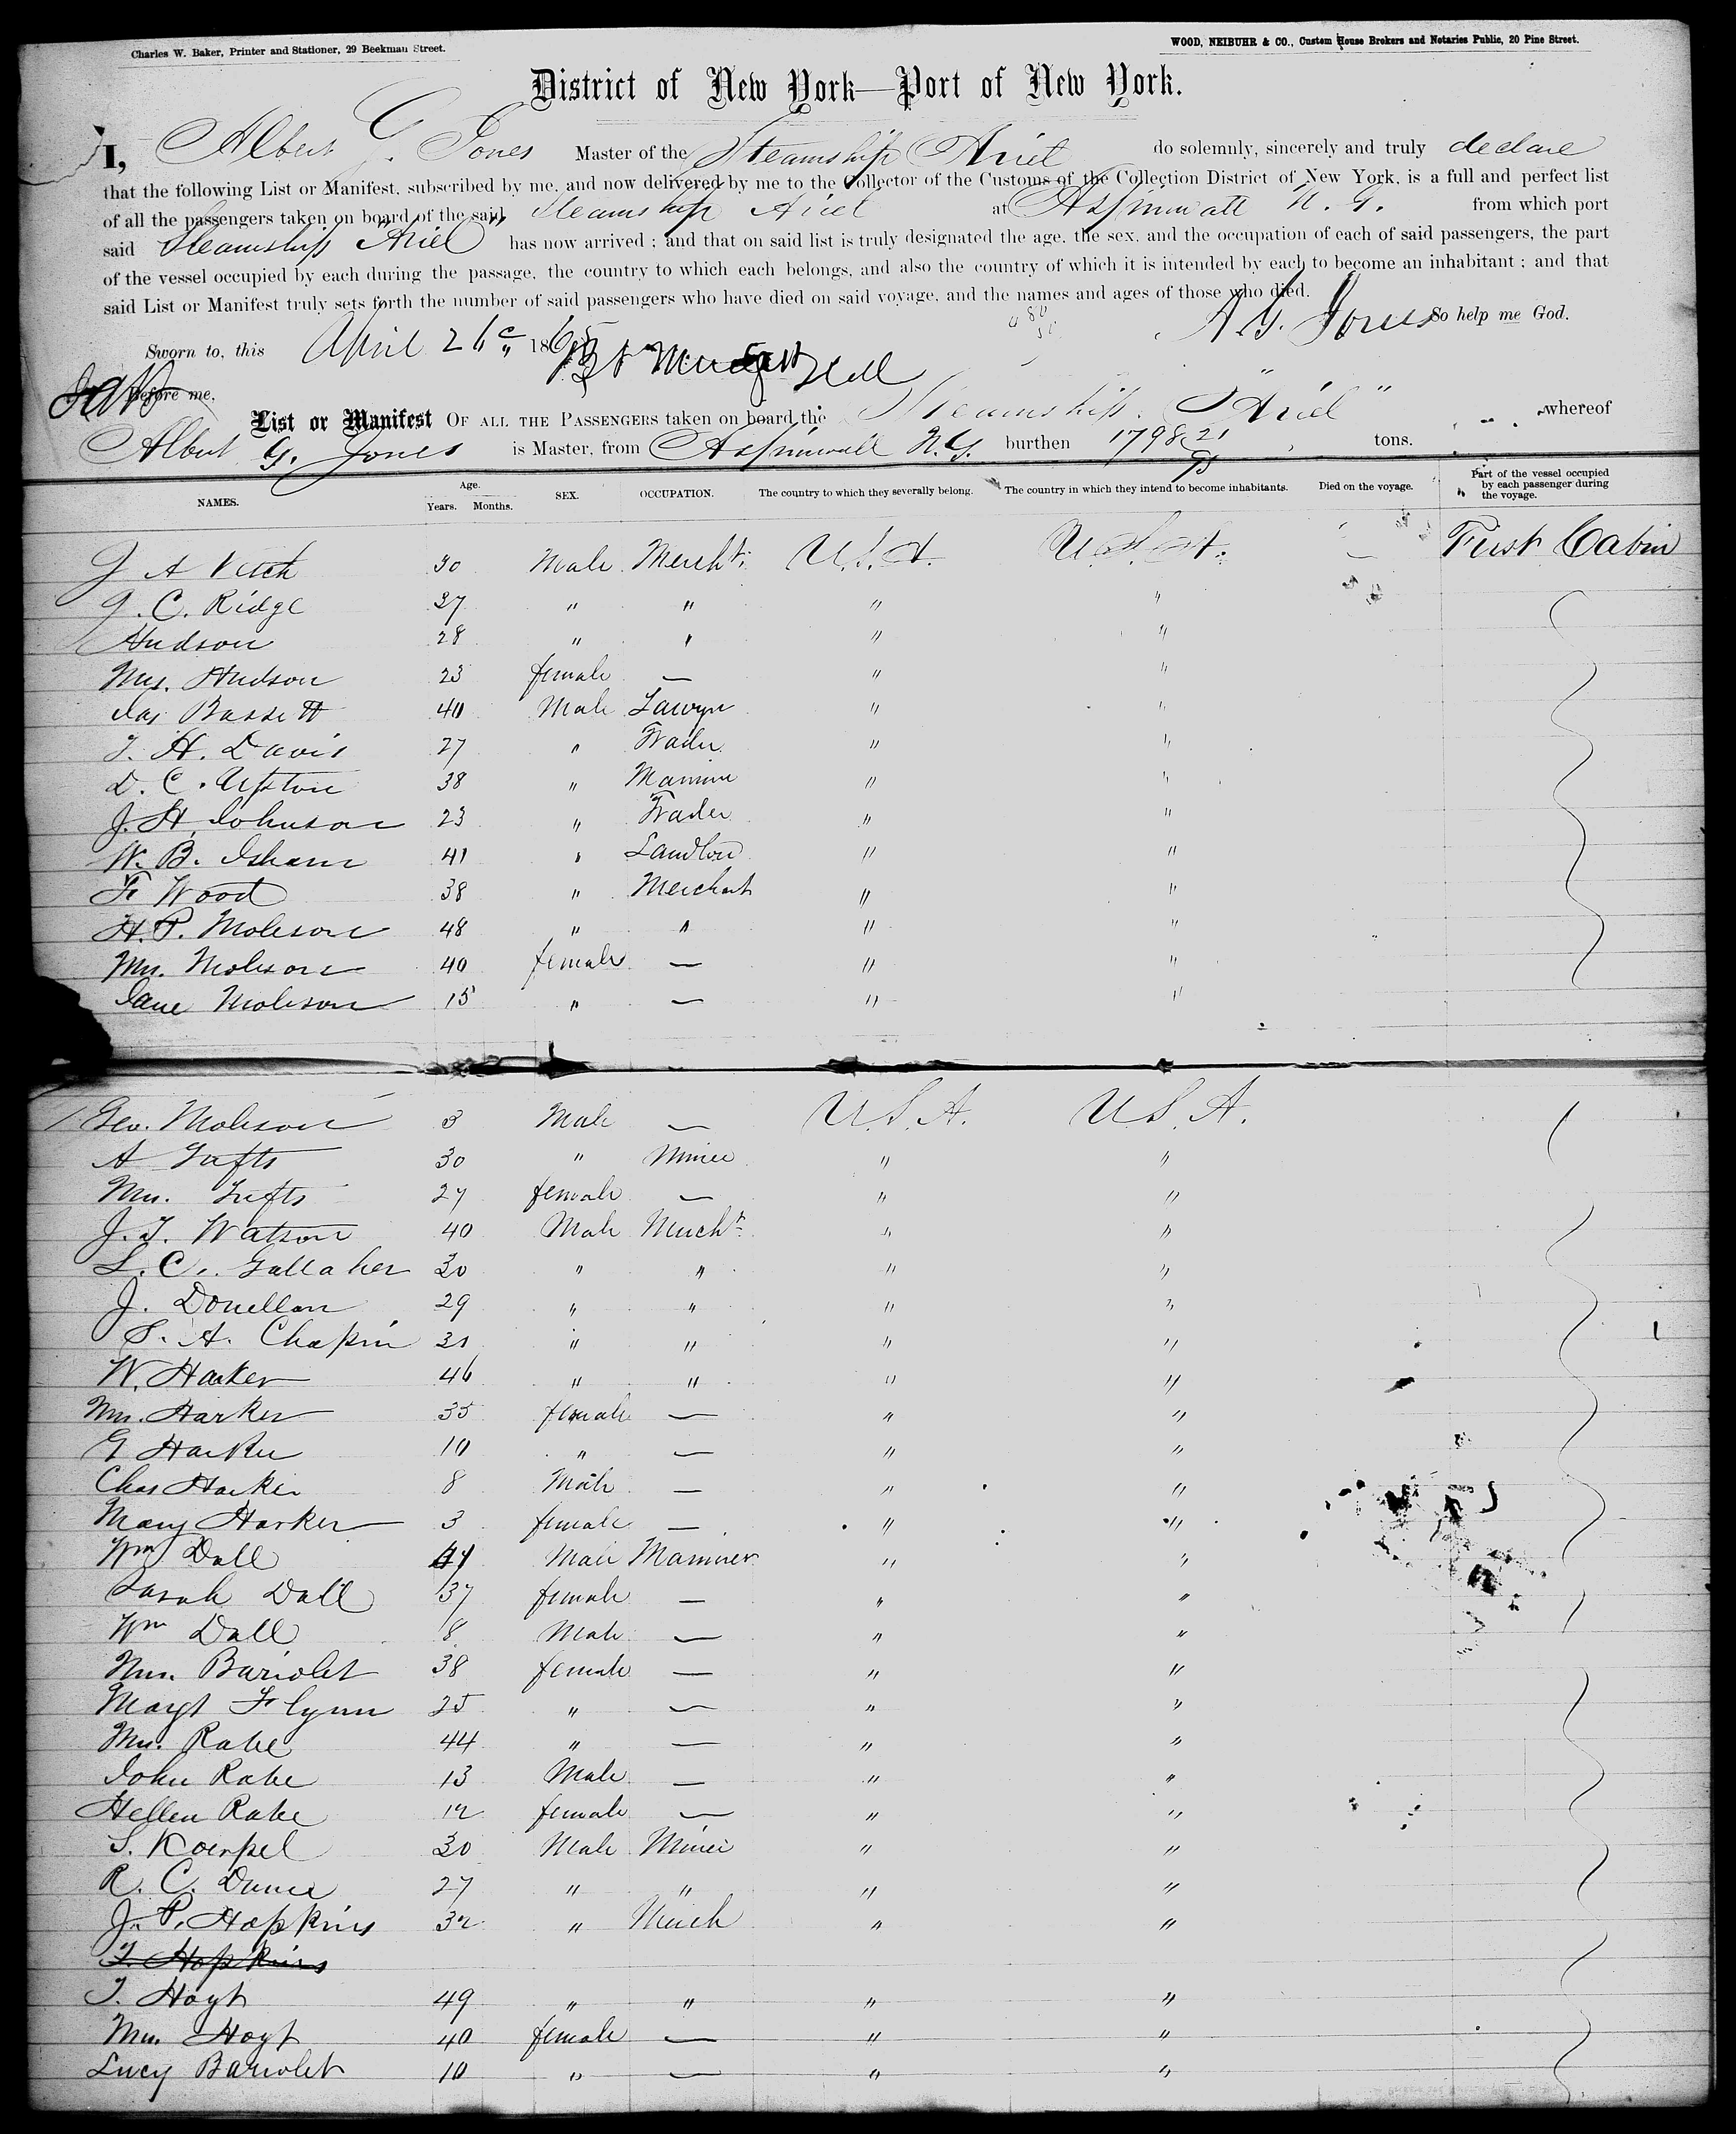 Charles W. Baker, Printer and Stationer, 29 Beekman Street.
WOOD, NEIBUHR & CO., Custom House Brokers and Notaries Public, 20 Pine Street.
District of New York—Port of New York.
I, Albert G. Jones Master of the Steamship Ariel do solemnly, sincerely and truly declare
that the following List or Manifest, subscribed by me, and now delivered by me to the Collector of the Customs of the Collection District of New York, is a full and perfect list
of all the passengers taken on board of the said Steamship Ariel at Aspinwall N. G. from which port
said Steamship "Ariel" has now arrived ; and that on said list is truly designated the age, the sex, and the occupation of each of said passengers, the part
of the vessel occupied by each during the passage, the country to which each belongs, and also the country of which it is intended by each to become an inhabitant ; and that
said List or Manifest truly sets forth the number of said passengers who have died on said voyage, and the names and ages of those who died.
A. G. Jones So help me God.
Sworn to, this April 26 1865
Before me,
List or Manifest OF ALL THE PASSENGERS taken on board the Steamship "Ariel" whereof
Albert G. Jones is Master, from Aspinwall N.G. burthen 1798 21/95 tons.
NAMES. Age. Years. Months. SEX. OCCUPATION. The country to which they severally belong. The country in which they intend to become inhabitants. Died on the voyage. Part of the vessel occupied by each passenger during the voyage.
J A Veitch 30 Male Mercht. U.S.A. U.S.A. — First Cabin
J. C. Ridge 37 " " " "
Hudson 28 " " " "
Mrs. Hudson 23 female — " "
Jas Bassett 40 Male Lawyer " "
T. H. Davis 27 " Trader " "
D. C. Upton 38 " Mariner " "
J. H. Johnson 23 " Trader " "
W. B. Isham 41 " Landlord " "
F. Wood 38 " Merchant " "
H. P. Moleson 48 " " " "
Mrs. Moleson 40 female — " "
Jane Moleson 15 " — " "
Geo. Moleson 3 Male — U.S.A. U.S.A.
A Tufts 30 " Miner " "
Mrs. Tufts 27 female — " "
J. T. Watson 40 Male Mercht " "
L. C. Gallaher 30 " " " "
J. Donellan 29 " " " "
S. A. Chapin 31 " " " "
W. Harker 46 " " " "
Mrs. Harker 35 female — " "
G Harker 10 " — " "
Chas Harker 8 Male — " "
Mary Harker 3 female — " "
Wm Dall Male Mariner " "
Sarah Dall 37 female — " "
Wm Dall 8 Male — " "
Mrs. Bariolet 38 female — " "
Margt Flynn 25 " — " "
Mrs. Rabe 44 " — " "
John Rabe 13 Male — " "
Hellen Rabe 12 female — " "
S. Koerpel 30 Male Miner " "
R. C. 27 " " " "
J. P. Hopkins 32 " Merch " "
T. Hopkins
T. Hoyt 49 " " " "
Mrs. Hoyt 40 female — " "
Lucy Bariolet 10 " — " "